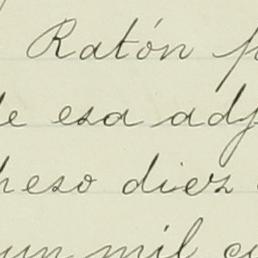 Ratón p
de esa adj
peso diez
un mil c